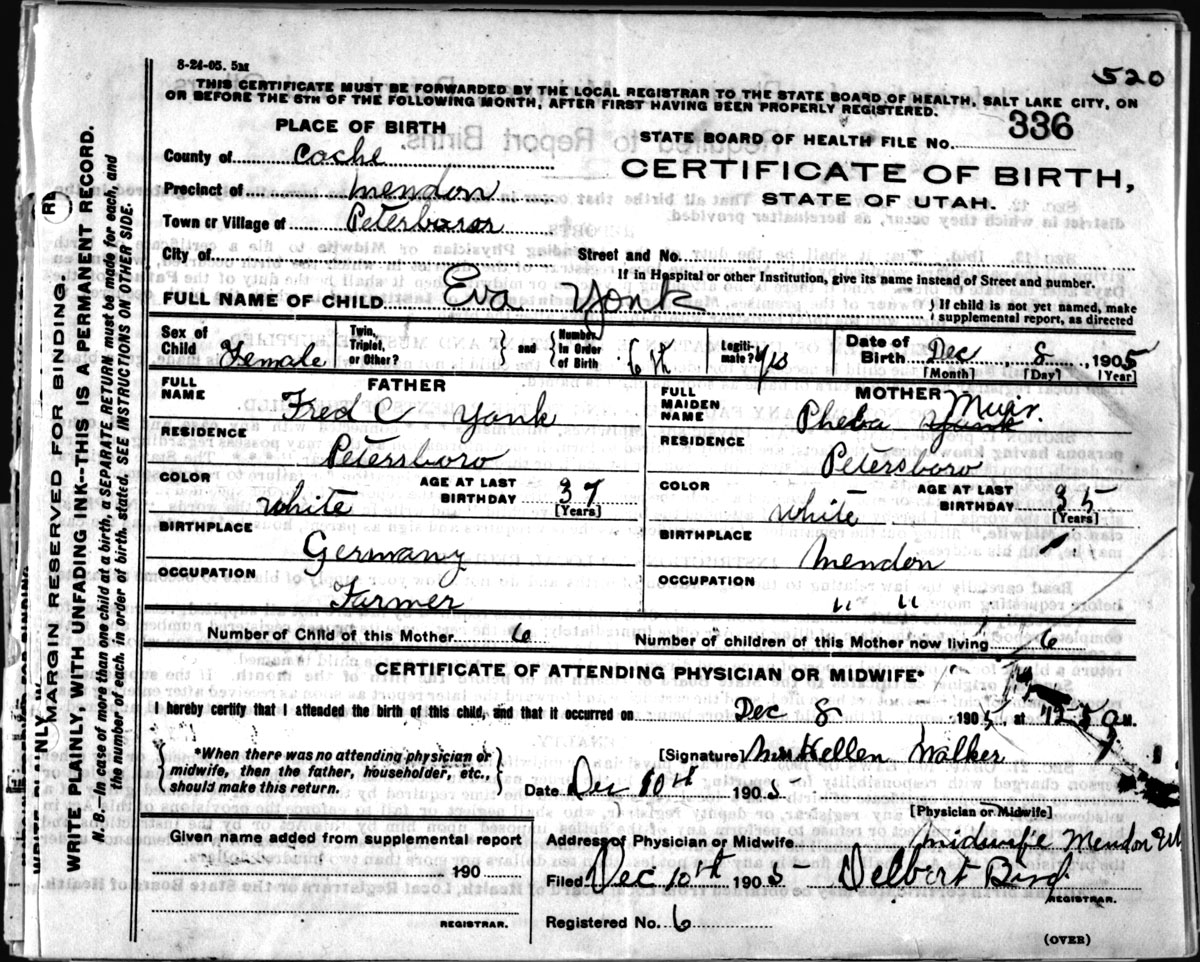 8-24-05. 5M
520
THIS CERTIFICATE MUST BE FORWARDED BY THE LOCAL REGISTRAR TO THE STATE BOARD OF HEALTH, SALT LAKE CITY, ON
OR BEFORE THE 5TH OF THE FOLLOWING MONTH, AFTER FIRST HAVING BEEN PROPERLY REGISTERED.
PLACE OF BIRTH
STATE BOARD OF HEALTH FILE NO. 336
County of Cache
CERTIFICATE OF BIRTH,
Precinct of Mendon
STATE OF UTAH.
Town or Village of
City of Street and No.
If in Hospital or other Institution, give its name instead of Street and number.
FULL NAME OF CHILD Eva Yonk } If child is not yet named, make supplemental report, as directed
Sex of Child Female Twin, Triplet, or Other? } and { Number, In Order of Birth 6th Legitimate? yes Date of Birth Dec 8, 1905
[Month] [Day] [Year]
FATHER
FULL NAME Fred C Yonk
RESIDENCE
Petersboro
COLOR White AGE AT LAST BIRTHDAY 37
[Years]
BIRTHPLACE
Germany
OCCUPATION
Farmer
MOTHER
FULL MAIDEN NAME Pheba Muir.
RESIDENCE
Petersboro
COLOR White AGE AT LAST BIRTHDAY 35
[Years]
BIRTHPLACE
Mendon
OCCUPATION
" "
Number of Child of this Mother 6 Number of children of this Mother now living 6
CERTIFICATE OF ATTENDING PHYSICIAN OR MIDWIFE*
I hereby certify that I attended the birth of this child, and that it occurred on Dec 8 1905, at M.
{ *When there was no attending physician or midwife, then the father, householder, etc., should make this return. }
[Signature] Hellen Walker
Date Dec 10th 1905
[Physician or Midwife]
Given name added from supplemental report
190
REGISTRAR.
Address of Physician or Midwife. Midwife Mendon
Filed Dec 10th 1905 Delbert Bird
REGISTRAR.
Registered No. 6
(OVER)
MARGIN RESERVED FOR BINDING.
WRITE PLAINLY, WITH UNFADING INK--THIS IS A PERMANENT RECORD.
N. B.--In case of more than one child at a birth, a SEPARATE RETURN must be made for each, and
the number of each, in order of birth, stated, SEE INSTRUCTIONS ON OTHER SIDE.
WRITE PLAINLY, W